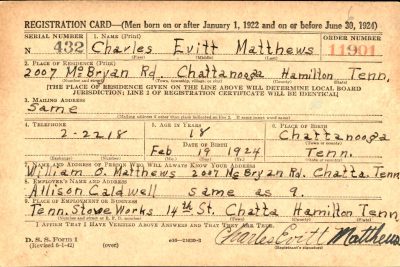 REGISTRATION CARD—(Men born on or after January 1, 1922 and on or before June 30, 1924)
SERIAL NUMBER 1. NAME (Print) ORDER NUMBER
N 432 Charles Evitt Matthews 11901
(First) (Middle) (Last)
2. PLACE OF RESIDENCE (Print)
2007 McBryan Rd. Chattanooga Hamilton Tenn.
(Number and street) (Town, township, village, or city) (County) (State)
[THE PLACE OF RESIDENCE GIVEN ON THE LINE ABOVE WILL DETERMINE LOCAL BOARD
JURISDICTION; LINE 2 OF REGISTRATION CERTIFICATE WILL BE IDENTICAL]
3. MAILING ADDRESS
Same
[Mailing address if other than place indicated on line 2. If same insert word same]
4. TELEPHONE 5. AGE IN YEARS 6. PLACE OF BIRTH
2-2218 18 Chattanooga
DATE OF BIRTH (Town or county)
Feb 19 1924 Tenn.
(Exchange) (Number) (Mo.) (Day) (Yr.) (State or country)
7. NAME AND ADDRESS OF PERSON WHO WILL ALWAYS KNOW YOUR ADDRESS
William O. Matthews 2007 McBryan Rd. Chatta. Tenn
8. EMPLOYER'S NAME AND ADDRESS
Allison Caldwell same as 9.
9. PLACE OF EMPLOYMENT OR BUSINESS
Tenn. Stove Works 14th St. Chatta Hamilton Tenn
(Number and street or R. F. D. number) (Town) (County) (State)
I AFFIRM THAT I HAVE VERIFIED ABOVE ANSWERS AND THAT THEY ARE TRUE.
D. S. S. FORM 1
(Revised 6-1-42) (over) Charles Evitt Matthews
(Registrant's signature)